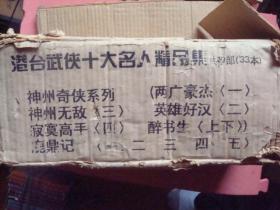 港台武侠十大名人精品集 共29部(33本)
神州奇侠系列 (两广豪杰〈一〉
神州无敌〈三〉 英雄好汉〈二〉
寂寞高手〈四〉 醉书生〈上下〉)
鹿鼎记〈一 二 三 四 五〉